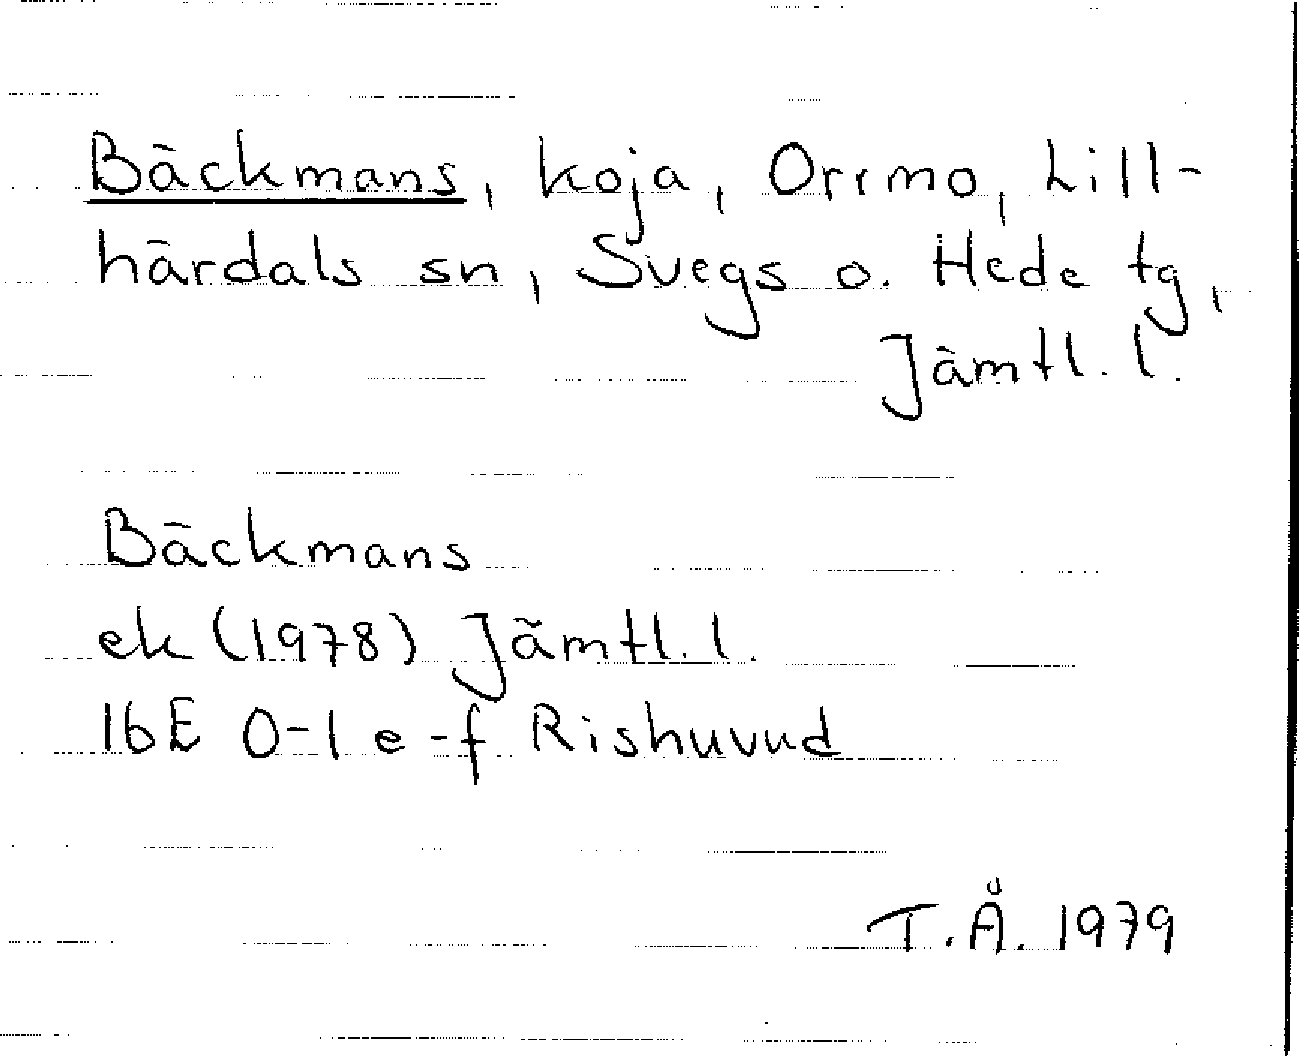 Bäckmans, koja, Orrmo, Lill-
härdals sn, Svegs o. Hede tg,
Jämtl. l.
Bäckmans
ek (1978) Jämtl. l.
16E 0-1 e-f Rishuvud
T.Å. 1979